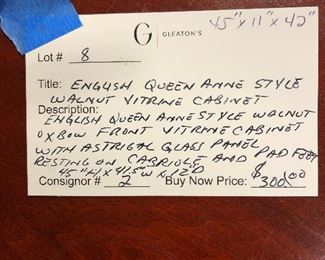 45" x 11" x 42"
G | GLEATON'S
Lot # 8
Title: ENGLISH QUEEN ANNE STYLE
WALNUT VITRINE CABINET
Description:
ENGLISH QUEEN ANNE STYLE WALNUT
OXBOW FRONT VITRINE CABINET
WITH ASTRIGAL GLASS PANEL
RESTING ON CABRIOLE AND PAD FEET
45"H X 41.5"W X 12"D
Consignor # 2 Buy Now Price: $300.00